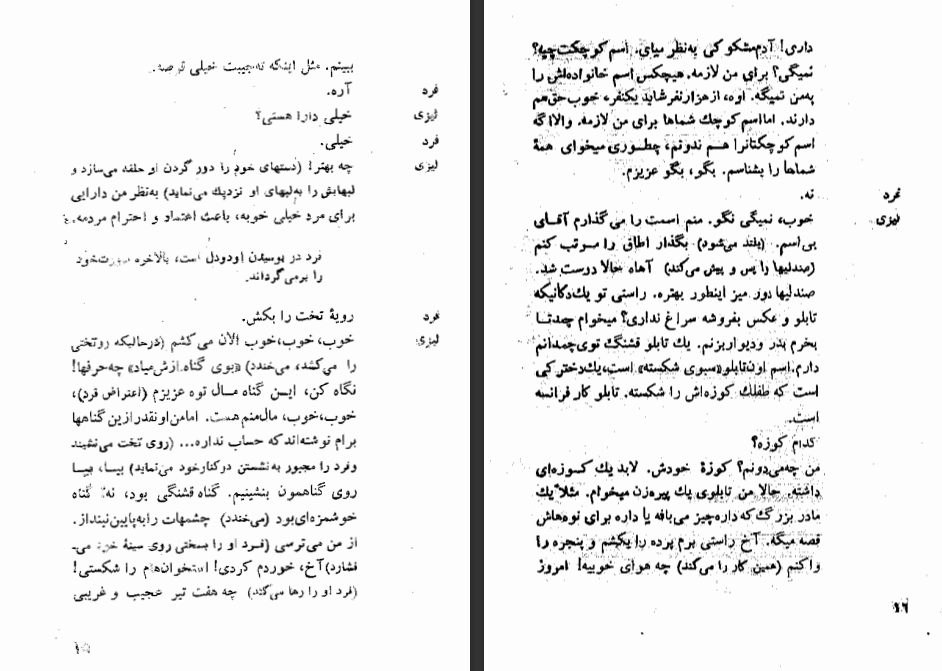 ببینم. مثل اینکه ته‌جیبت خیلی قرصه.
فرد آره.
لیزی خیلی دارا هستی؟
فرد خیلی.
لیزی چه بهتر! (دستهای خود را دور گردن او حلقه می‌سازد و
لبهایش را به‌لبهای او نزدیك می‌نماید) به‌نظر من دارایی
برای مرد خیلی خوبه، باعث اعتماد و احترام مردمه.
فرد در بوسیدن او دودل است، بالاخره صورت‌خود
را برمی‌گرداند.
فرد رویهٔ تخت را بکش.
لیزی خوب، خوب، خوب الان می‌کشم (درحالیکه روتختی
را می‌کشد، می‌خندد) «بوی گناه‌ازش‌میاد» چه‌حرفها!
نگاه کن، ایـن گناه مـال توه عزیزم (اعتراض فرد)،
خوب، خوب، مال‌منم هست. امامن‌اونقدرازین گناهها
برام نوشته‌اندکه حساب نداره... (روی تخت می‌نشیند
وفرد را مجبور به‌نشستن درکنارخود می‌نماید) بیـا، بیـا
روی گناهمون بنشینیم. گناه قشنگی بود، نه؟ گناه
خوشمزه‌ای‌بود (می‌خندد) چشمهات رابه‌پایین‌نینداز.
از من می‌ترسی (فـرد او را بسختی روی سینهٔ خود می‌-
فشارد)آخ، خوردم کردی! استخوان‌هام را شکستی!
(فرد او را رها می‌کند) چه هفت تیر عجیب و غریبی
۱۵
داری! آدم‌مشکوکی به‌نظر میای. اسم کوچکت‌چیه؟
نمیگی؟ برای من لازمه. هیچکس اسم خانواده‌اش را
به‌من نمیگه. اوه، ازهزارنفرشاید یکنفر، خوب‌حق‌هم
دارند. امااسم کوچك شماها برای من لازمه. والااگه
اسم کوچکتانرا هـم ندونم، چطـوری میخوای همهٔ
شماها را بشناسم. بگو، بگو عزیزم.
فرد نه.
لیزی خوب، نمیگی نگو. منم اسمت را می‌گذارم آقـای
بی‌اسم. (بلند می‌شود) بگذار اطاق را مـرتب کنم
(صندلیها را پس و پیش می‌کند) آهاه حالا درست شد.
صندلیها دور میز اینطور بهتره. راستی تو یك‌دکانیکه
تابلو و عکس بفروشه سراغ نداری؟ میخوام چندتـا
بخرم بدر ودیواربزنم. یك تابلو قشنگ توی‌چمدانم
دارم.اسم اون‌تابلو«سبوی شکسته» است،یك‌دخترکی
است که طفلك کوزه‌اش را شکسته. تابلو کار فرانسه
است.
کدام کوزه؟
من چه‌می‌دونم؟ کوزهٔ خودش. لابد یك کـوزه‌ای
داشته. حالا من تابلوی یك پیره‌زن میخوام. مثلاً یك
مادر بزرگ که داره‌چیز می‌بافه یا داره برای نوه‌هاش
قصه میگه. آخ راستی برم پرده را بکشم و پنجره را
واکنم (همین کار را می‌کند) چه هوای خوبیه! امروز
۱۶